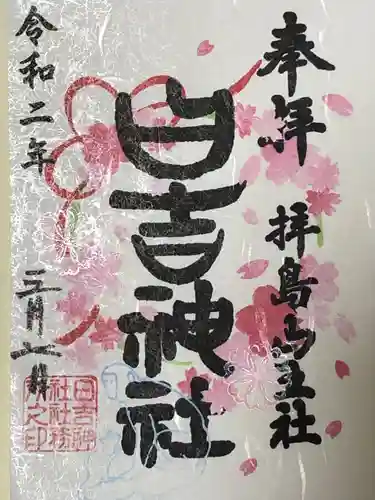 奉拝
拝島山王社
日吉神社
令和二年
三月一日
日吉神
社社務
所之印